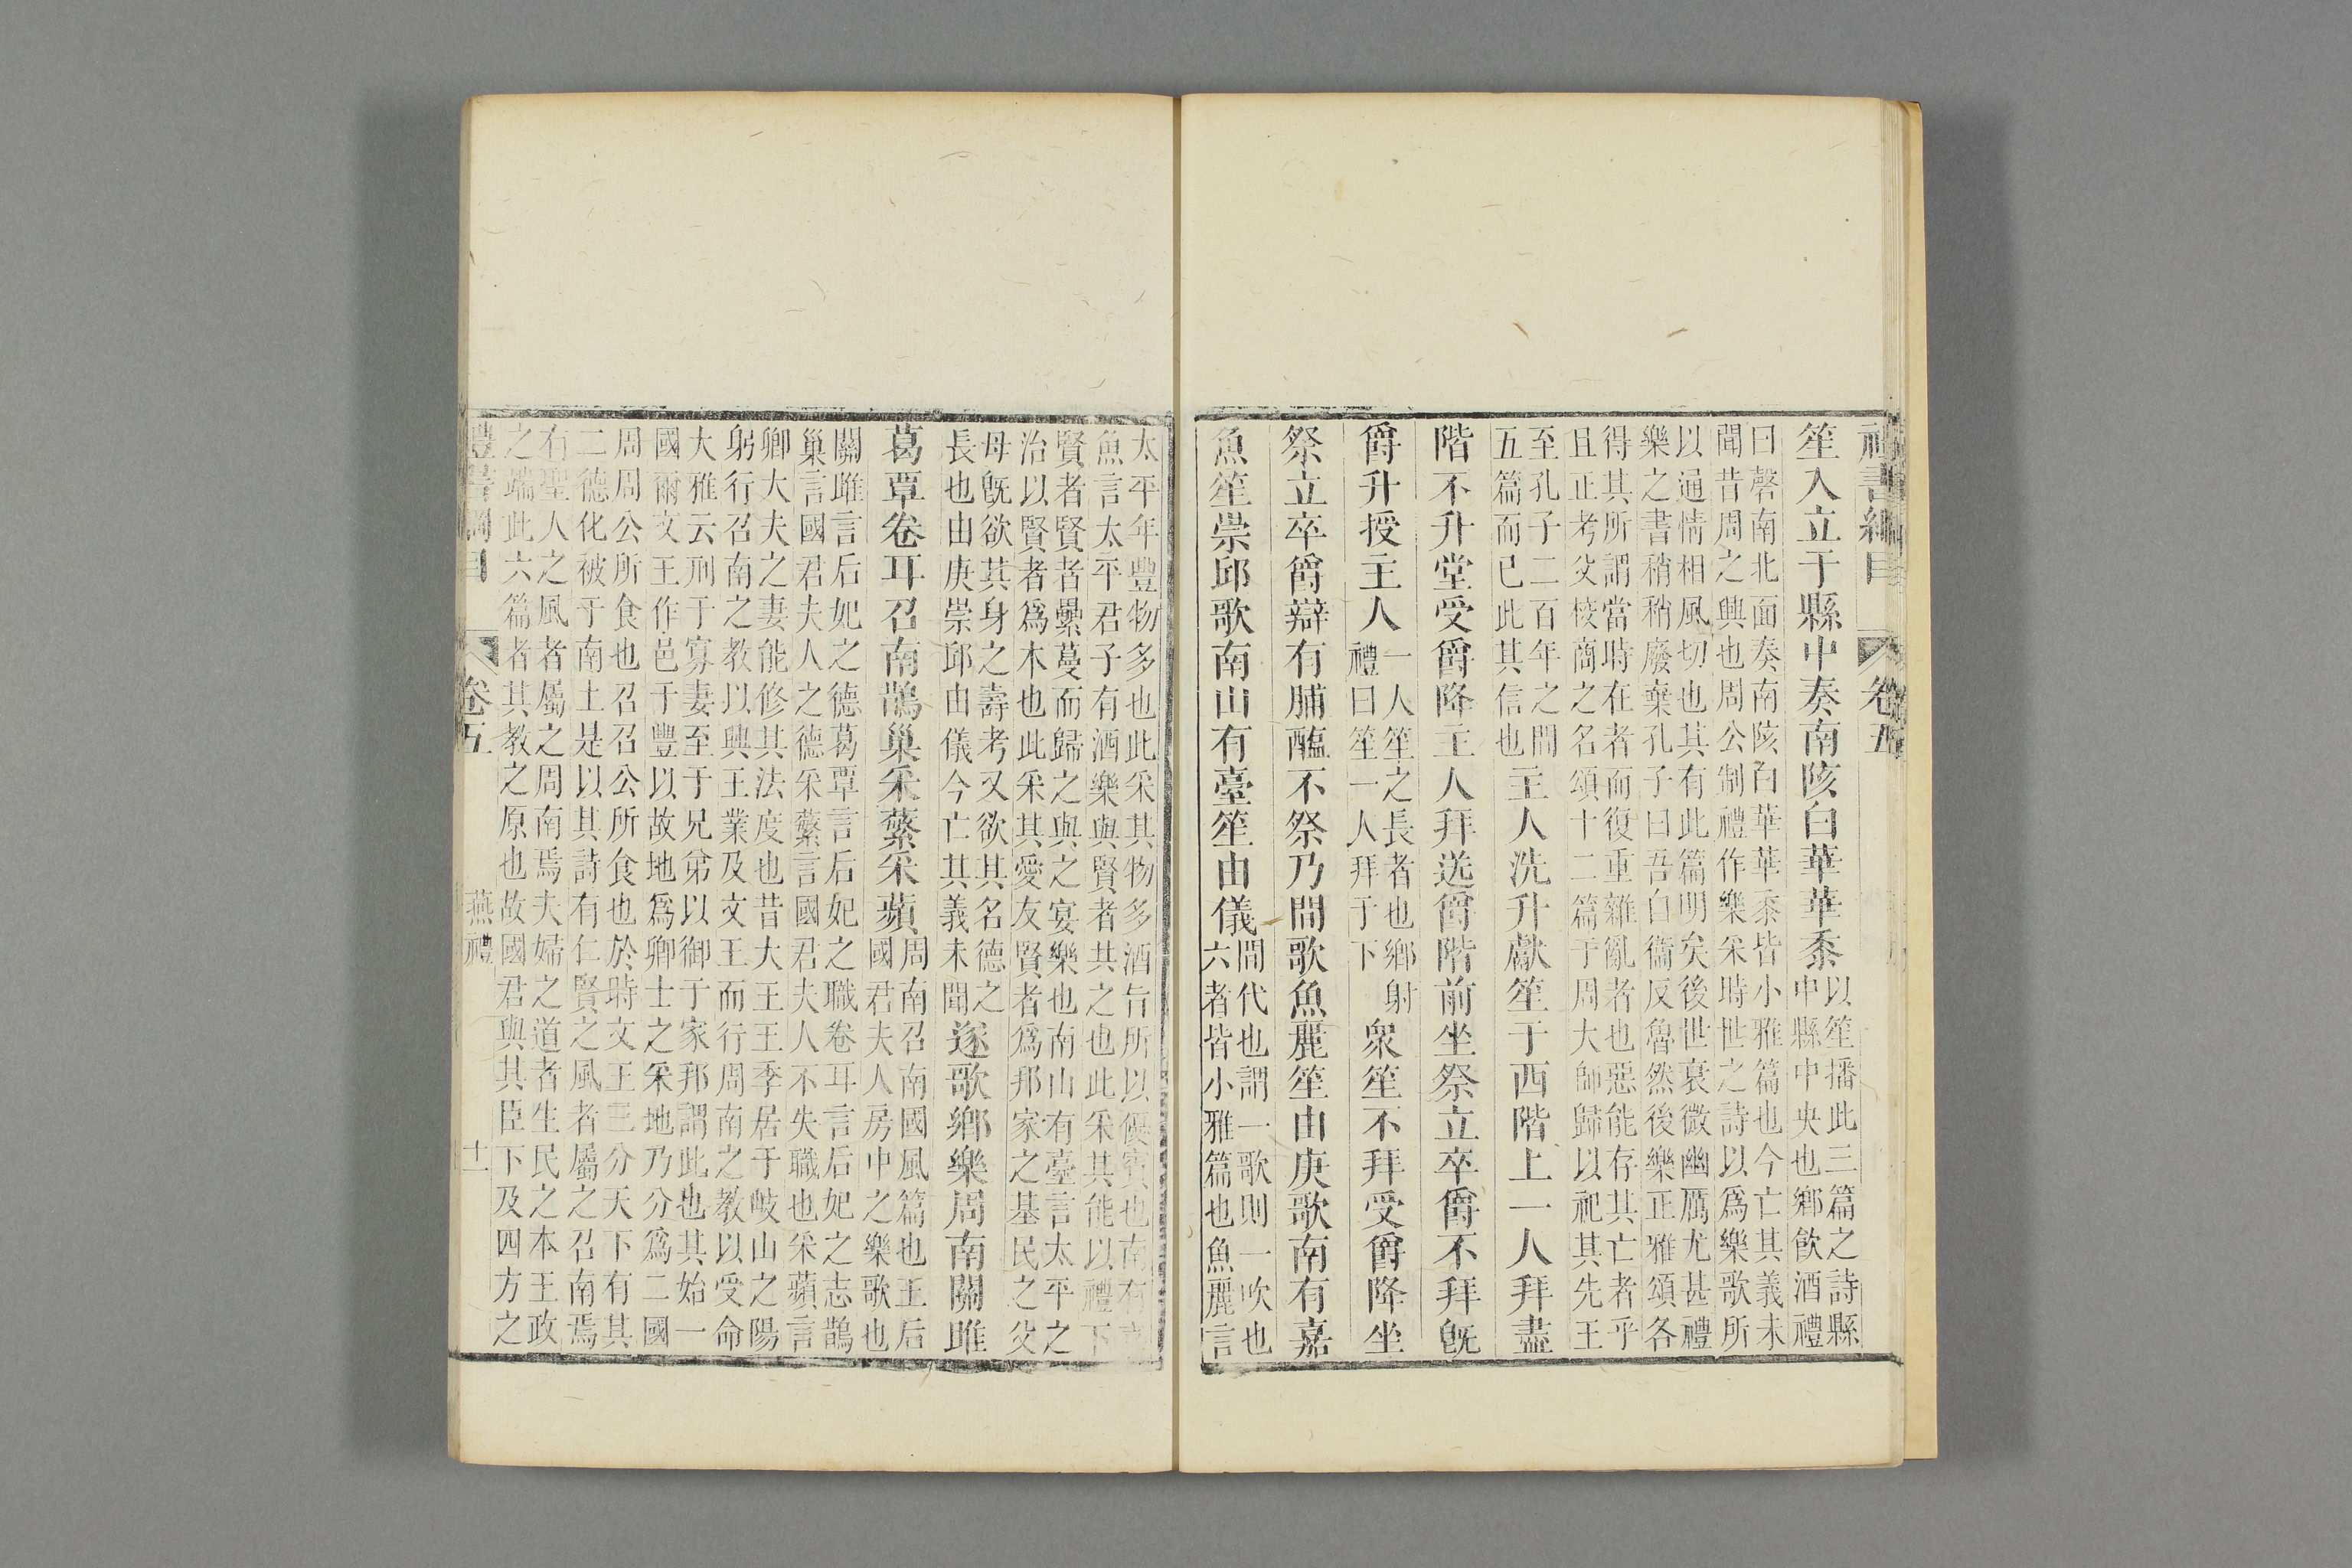 禮書綱目 卷五
笙入立于縣中奏南陔白華華黍以笙播此三篇之詩縣
中縣中央也鄉飲酒禮
曰磬南北面奏南陔白華華黍皆小雅篇也今亡其義未
聞昔周之興也周公制禮作樂采時世之詩以爲樂歌所
以通情相風切也其有此篇明矣後世衰微幽厲尤甚禮
樂之書稍稍廢棄孔子曰吾自衞反魯然後樂正雅頌各
得其所謂當時在者而復重雜亂者也惡能存其亡者乎
且正考父校商之名頌十二篇于周大師歸以祀其先王
至孔子二百年之間
五篇而已此其信也
主人洗升獻笙于西階上一人拜盡
階不升堂受爵降主人拜送爵階前坐祭立卒爵不拜既
爵升授主人
一人笙之長者也鄉射
禮曰笙一人拜于下
衆笙不拜受爵降坐
祭立卒爵辯有脯醢不祭乃間歌魚麗笙由庚歌南有嘉
魚笙崇邱歌南山有臺笙由儀
間代也謂一歌則一吹也
六者皆小雅篇也魚麗言
太平年豐物多也此采其物多酒旨所以優賓也南有
魚言太平君子有酒樂與賢者共之也此采其能以禮下
賢者賢者纍蔓而歸之與之宴樂也南山有臺言太平之
治以賢者爲本也此采其愛友賢者爲邦家之基民之父
母既欲其身之壽考又欲其名德之
長也由庚崇邱由儀今亡其義未聞
遂歌鄉樂周南關雎
葛覃卷耳召南鵲巢采蘩采蘋
周南召南國風篇也王后
國君夫人房中之樂歌也
關雎言后妃之德葛覃言后妃之職卷耳言后妃之志鵲
巢言國君夫人之德采蘩言國君夫人不失職也采蘋言
卿大夫之妻能修其法度也昔大王王季居于岐山之陽
躬行召南之教以興王業及文王而行周南之教以受命
大雅云刑于寡妻至于兄弟以御于家邦謂此也其始一
國爾文王作邑于豐以故地爲卿士之采地乃分爲二國
周周公所食也召召公所食也於時文王三分天下有其
二德化被于南土是以其詩有仁賢之風者屬之召南焉
有聖人之風者屬之周南焉夫婦之道者生民之本王政
之端此六篇者其教之原也故國君與其臣下及四方之
禮書綱目 卷五 燕禮 十一